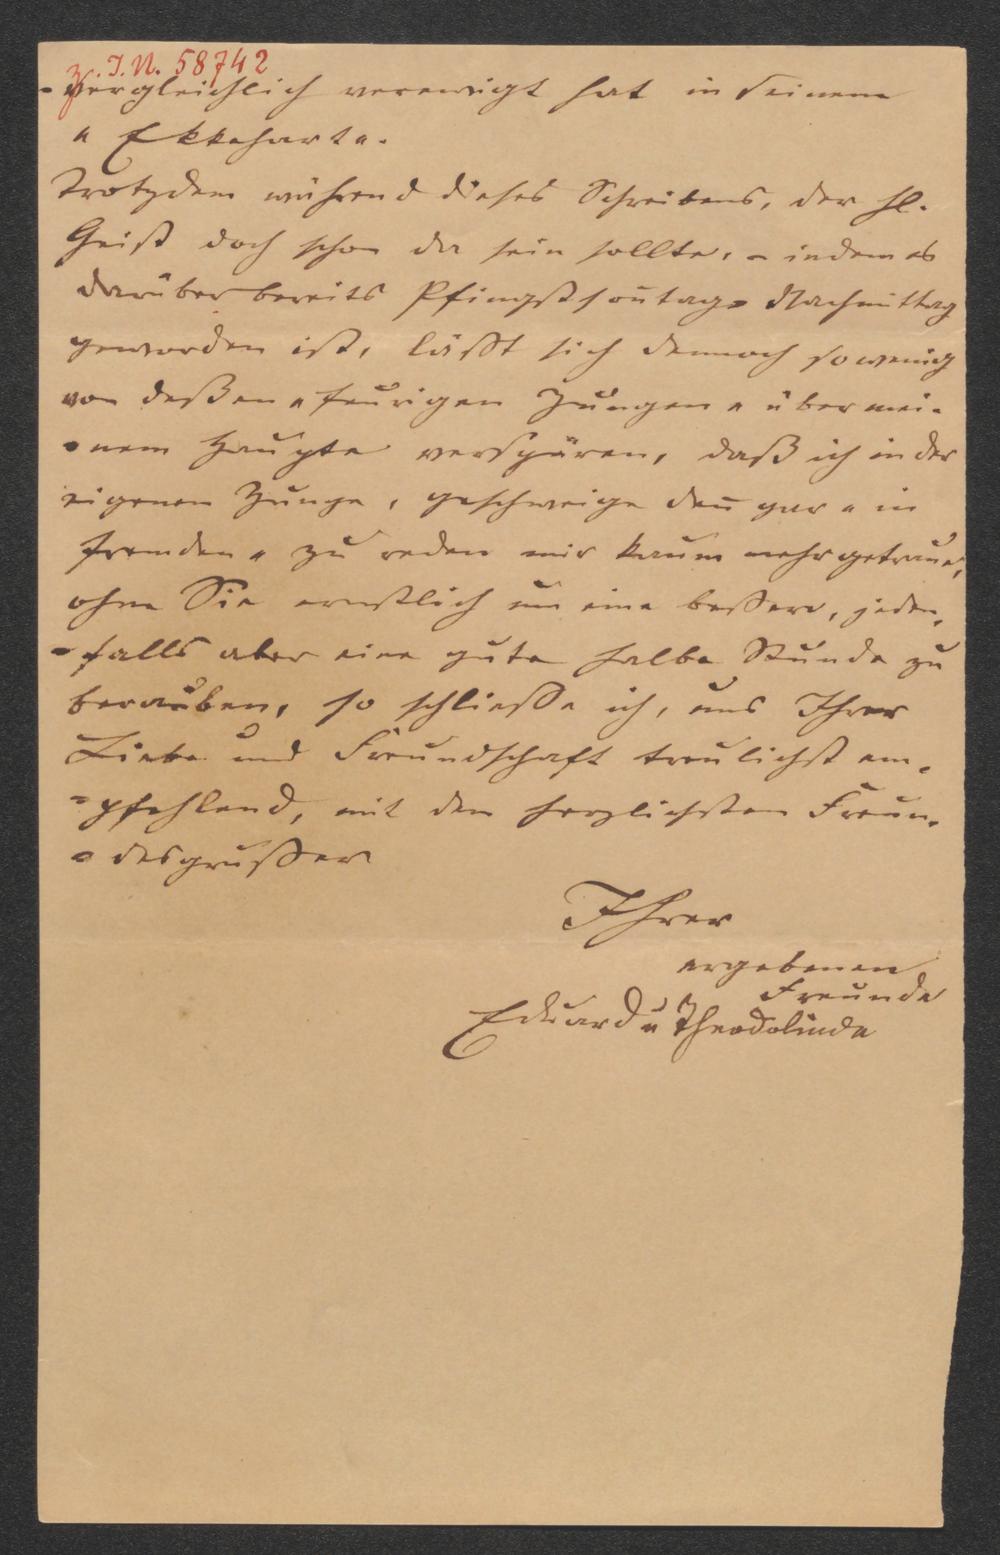 z. I. N. 58742
-vergleichlich verewigt hat in seinem
„Ekkehart“.
Trotzdem während dieses Schreibens, der hl.
Geist doch schon da sein sollte, - indem es
darüber bereits Pfingstsoñtag-Nachmittag
geworden ist, läßt sich dennoch so wenig
von deßen „feurigen Zungen“ über mei-
-nem Haupte verspüren, daß ich in der
eigenen Zunge, geschweige deñ gar „in
fremden“ zu reden mir kaum mehr getraue,
ohne Sie ernstlich um eine beßere, jeden-
-falls aber eine gute halbe Stunde zu
berauben, so schließe ich, uns Ihrer
Liebe und Freundschaft treulichst em-
-pfehlend, mit den herzlichsten Freun-
-desgrüßen
Ihrer
ergebenen
Freunde
Eduard u Theodolinde